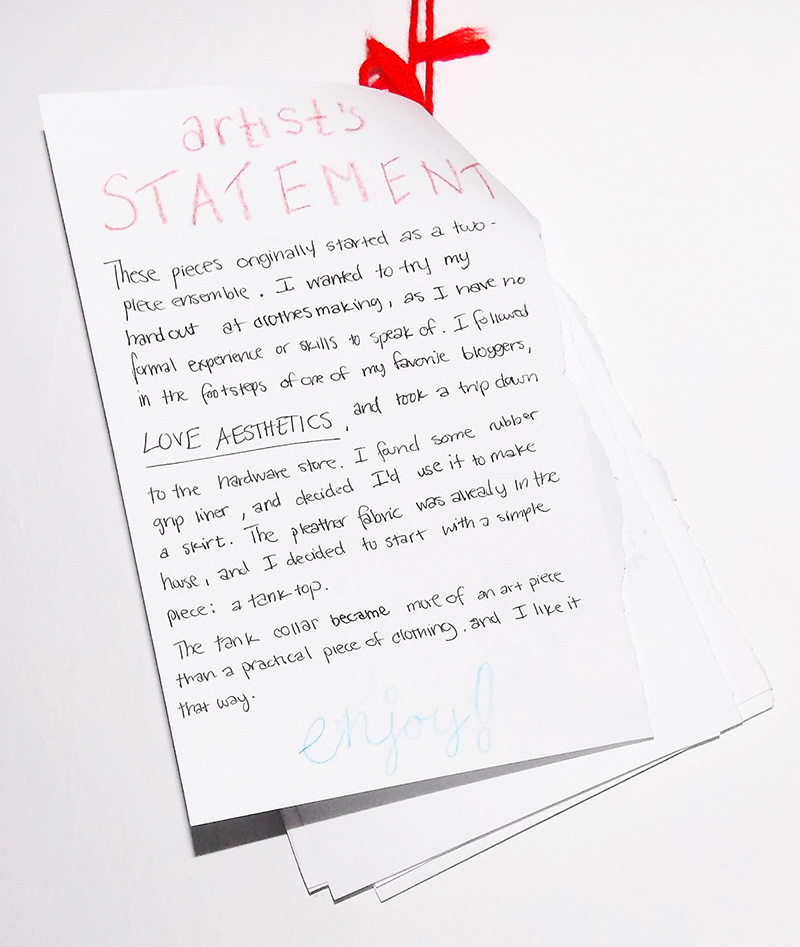 artist's
STATEMENT
These pieces originally started as a two-
piece ensemble. I wanted to try my
hand out at clothesmaking, as I have no
formal experience or skills to speak of. I followed
in the footsteps of one of my favorite bloggers,
LOVE AESTHETICS, and took a trip down
to the hardware store. I found some rubber
grip liner, and decided I'd use it to make
a skirt. The pleather fabric was already in the
house, and I decided to start with a simple
piece: a tank top.
The tank collar became more of an art piece
than a practical piece of clothing, and I like it
that way.
enjoy!